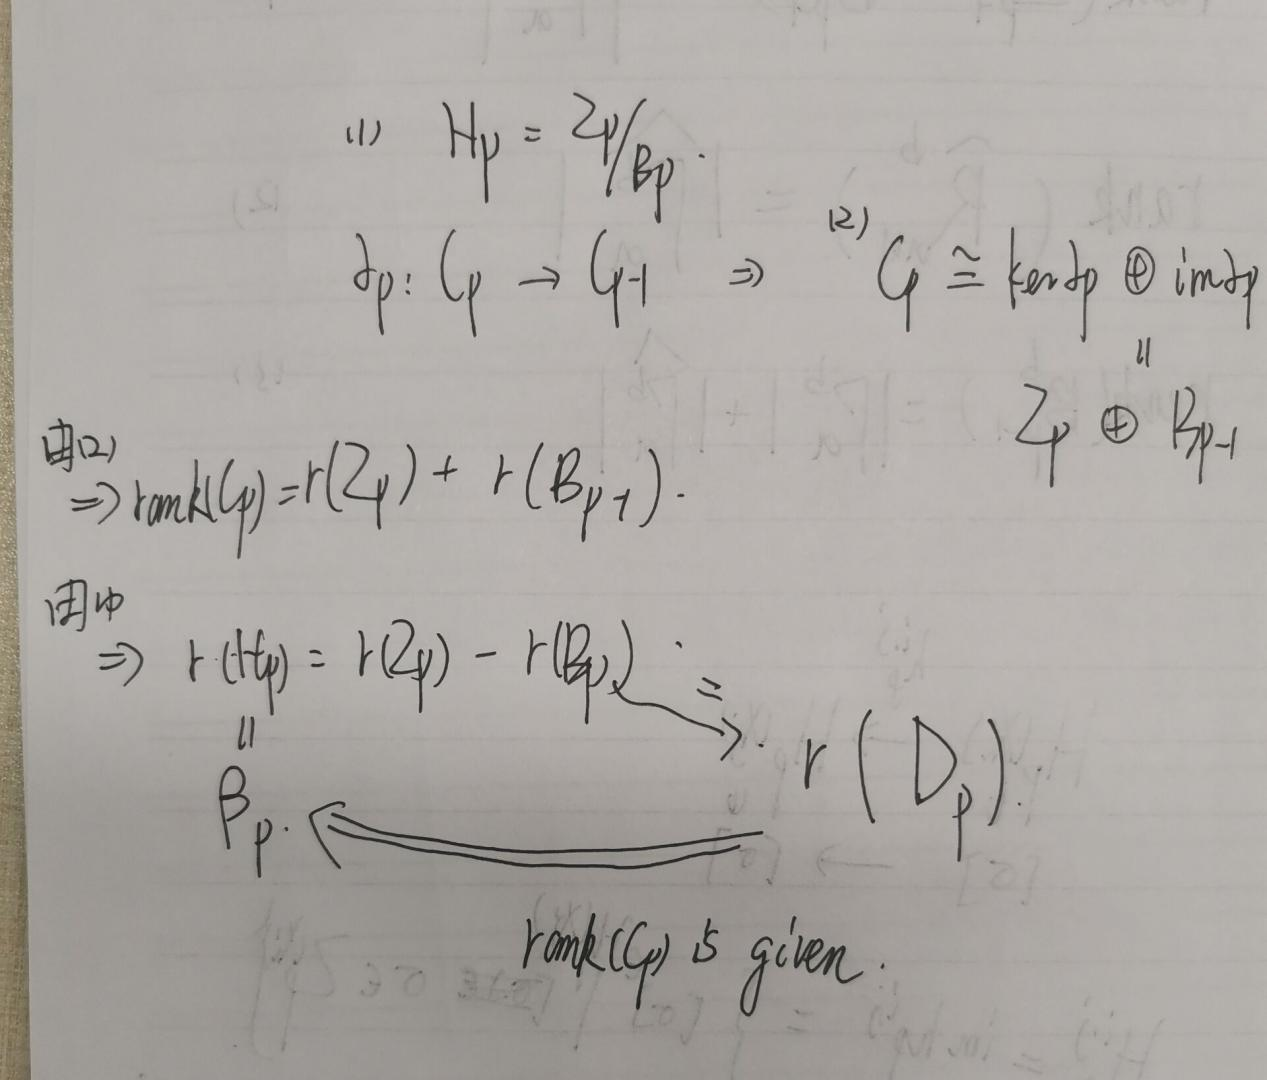 (1) Hp = Zp/Bp.
∂p: Cp → Cp-1 ⇒ (2) Cp ≅ ker∂p ⊕ im∂p
=
Zp ⊕ Bp-1
由(2)
⇒ rank(Cp) = r(Zp) + r(Bp-1).
由(1)
⇒ r(Hp) = r(Zp) - r(Bp). =
= r(Dp).
βp.
rank(Cp) is given.